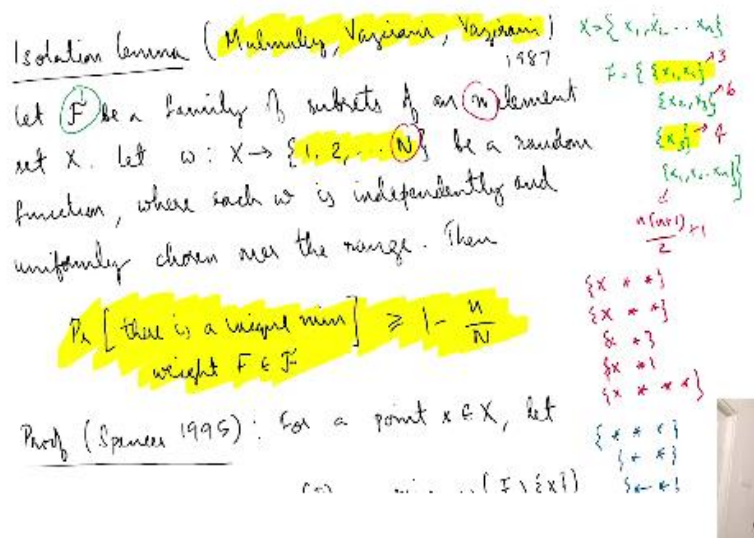 Isolation lemma (Mulmuley, Vazirani, Vazirani)
1987
Let F be a family of subsets of an n element
set X. Let w : X → {1, 2, ... N} be a random
function, where each w is independently and
uniformly chosen over the range. Then
Pr [there is a unique min weight F ∈ F] ≥ 1 - n/N
Proof (Spencer 1995): For a point x ∈ X, let
X = {x₁, x₂ ... xₙ}
{x₂, x₃} → 6
n(n+1)/2 + 1
{x * *}
{x * *}
{x * * *}
{* * *}
{* *}